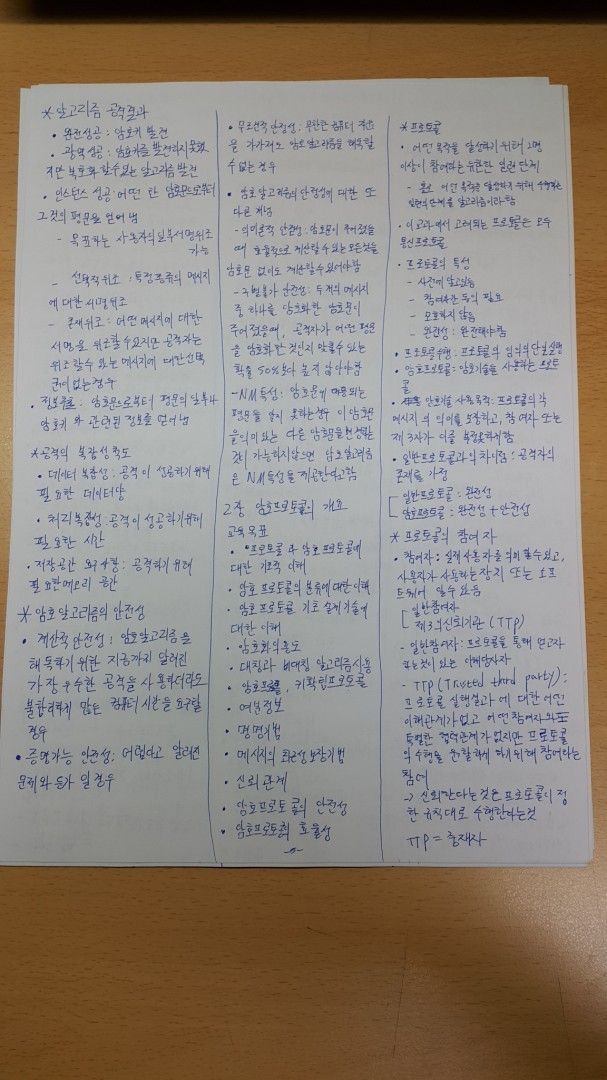 * 알고리즘 공격결과
• 완전성공 : 암호키 발견
• 광역성공 : 암호키를 발견하지 못했
지만 복호화 할 수 있는 알고리즘 발견
• 인스턴스 성공 : 어떤 한 암호문으로부터
그것의 평문을 얻어냄
- 목표하는 사용자의 일부 서명위조
가능
- 선택적위조 : 특정종류의 메시지
에 대한 서명위조
- 존재위조 : 어떤 메시지에 대한
서명을 위조할 수 있지만 공격자는
위조할 수 있는 메시지에 대한 선택
권이 없는 경우
• 정보유출 : 암호문으로부터 평문의 일부나
암호키와 관련된 정보를 얻어냄
* 공격의 복잡성척도
• 데이터 복잡성 : 공격이 성공하기위해
필요한 데이터량
• 처리복잡성 : 공격이 성공하기위해
필요한 시간
• 저장공간 요구사항 : 공격하기 위해
필요한 메모리 공간
* 암호 알고리즘의 안전성
• 계산적 안전성 : 암호알고리즘을
해독하기 위한 지금까지 알려진
가장 우수한 공격을 사용하더라도
불합리하게 많은 컴퓨터 시간을 요구할
경우
• 증명가능 안전성 : 어렵다고 알려진
문제와 등가 일 경우
• 무조건적 안전성 : 무한한 컴퓨터 자원
을 가져도 암호알고리즘을 해독할
수 없는 경우
• 암호 알고리즘의 안전성에 대한 또
다른 개념
- 의미론적 안전성 : 암호문이 주어졌을
때 효율적으로 계산할 수 있는 모든것을
암호문 없이도 계산할 수 있어야함
- 구별불가 안전성 : 두개의 메시지
중 하나를 암호화한 암호문이
주어졌을때, 공격자가 어떤 평문
을 암호화 한 것인지 맞출수 있는
확률 50%보다 높지 않아야함
- NM특성 : 암호문에 대응되는
평문을 알지 못하는경우 이 암호문
을 의미있는 다른 암호문으로 변환하는
것이 가능하지 않으면 암호알고리즘
은 NM특성을 제공한다고함
2장 암호프로토콜의 개요
교육 목표
• 프로토콜과 암호프로토콜에
대한 기초적 이해
• 암호 프로토콜의 분류에 대한 이해
• 암호 프로토콜 기초 설계 기술에
대한 이해
• 암호화의 용도
• 대칭과 비대칭 알고리즘 사용
• 암호프로토콜, 키확립프로토콜
• 여분정보
• 명명기법
• 메시지의 최근성 보장기법
• 신뢰 관계
• 암호프로토콜의 안전성
• 암호프로토콜의 효율성
* 프로토콜
• 어떤 목적을 달성하기 위해 2명
이상이 참여하는 유한한 일련 단계
어떤 목적을 달성하기 위해 수행하는
일련의 단계를 알고리즘이라함
• 이 교과에서 고려되는 프로토콜은 모두
통신프로토콜
• 프로토콜의 특성
- 사전에 알고있음
- 참여하는 동의 필요
- 모호하지 않음
- 완전성 : 완전해야함
• 프로토콜수행 : 프로토콜의 임의의 단일 실행
• 암호프로토콜 : 암호기술을 사용하는 프로토
콜
암호기술 사용목적 : 프로토콜의 각
메시지의 의미를 보장하고, 참여자 또는
제 3자가 이를 부정못하게함
• 일반프로토콜과의 차이점 : 공격자의
존재를 가정
일반프로토콜 : 완전성
암호프로토콜 : 완전성 + 안전성
* 프로토콜의 참여자
• 참여자 : 실제 사용자를 의미할수있고,
사용자가 사용하는 장치 또는 소프
트웨어 일 수 있음
일반참여자
제3의신뢰기관 (TTP)
- 일반참여자 : 프로토콜을 통해 얻고자
하는것이 있는 이해당사자
- TTP (Trusted third party) :
프로토콜 실행결과에 대한 어떤
이해관계가없고 어떤 참여자와도
특별한 협력관계가 없지만 프로토콜
의 수행을 원활하게 하기위해 참여하는
참여
-> 신뢰한다는것은 프로토콜이 정
한 규칙대로 수행한다는것
TTP = 중재자